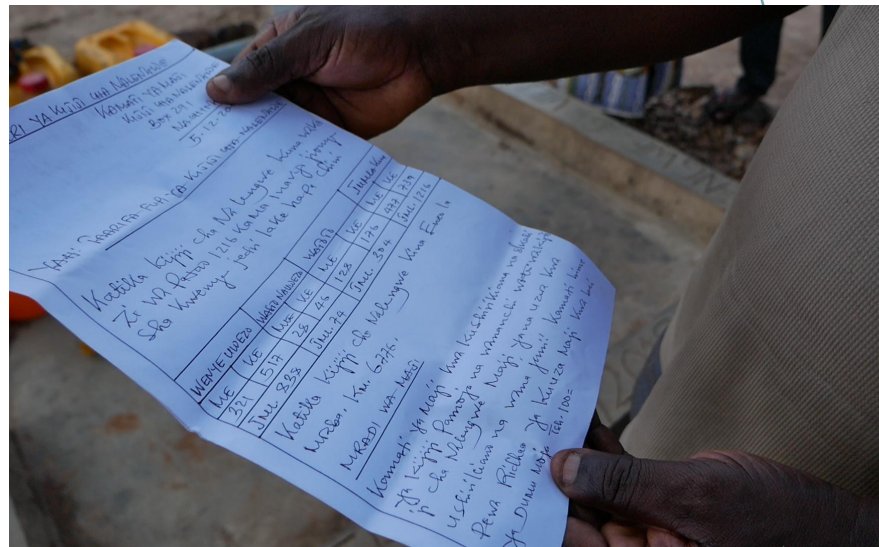 RI YA KIJIJI CHA NALENGWE
KAMATI YA MAJI
KIJIJI CHA NALENGWE
BOX 291
5-12-20
YAH: TAARIFA FUPI YA KIJIJI CHA
Katika Kijiji cha Nalengwe kuna waka
zi wapatao 1216 kama inavyo jiony-
sha kweny- jedi lake hapi chini
WENYE UWEZO WASIO NA UWEZO WATOTO JUMLA KUU
ME KE ME KE ME KE ME KE
321 517 28 46 128 176 477 739
JML. 838 JML. 74 JML. 304 JML. 1216
Katika Kijiji cha Nalengwe kina Eneo la
Mraba, Km. 6776.
MRADI WA MAJI
Kamati ya Maji kwa kushirikiana na
ya Kijiji Pamoja na wananchi
ji cha Nalengwe Maji yana uzwa kwa
ushirikiano na wana jamii Kamati
Pewa Ridhaa ya Kuuza Maji kwa bei
ya DUMU MOJA TSH. 100=